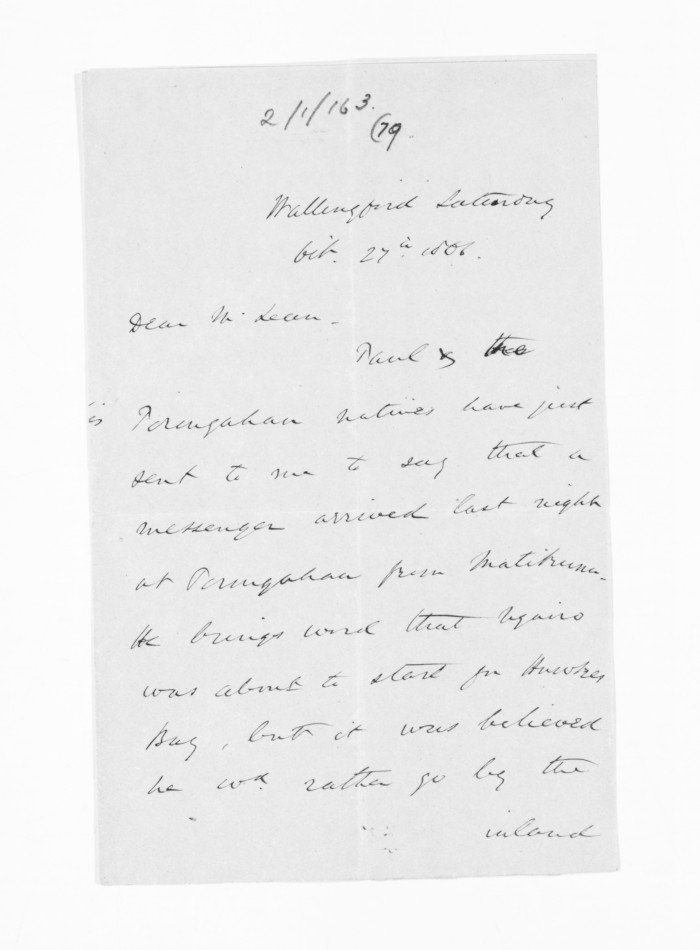 2/1/163.
(79.
Wallingford Saturday
Oct. 27th 1866.
Dear McLean -
Paul & the
Porongahau natives have just
sent to me to say that a
messenger arrived last night
at Porongahau from Matikuna -
He brings word that Ngairo
was about to start for Hawkes
Bay, but it was believed
he wd. rather go by the
inland